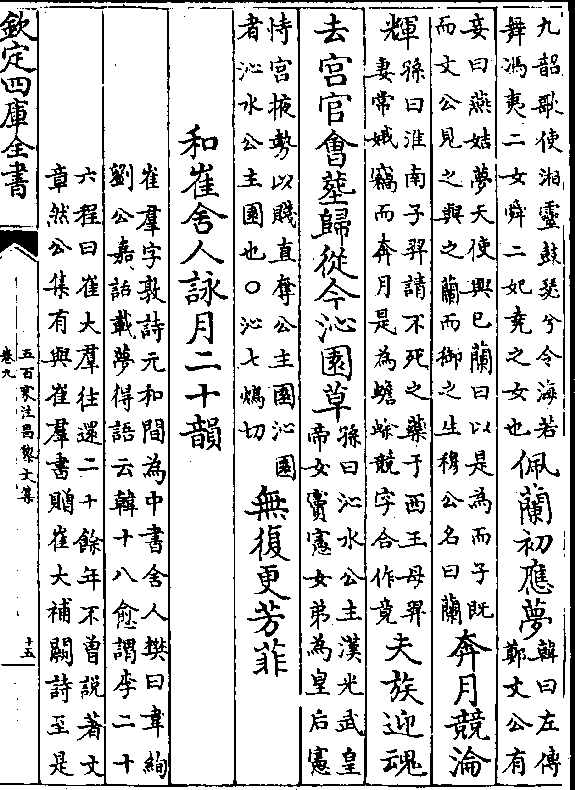 九韶歌使湘靈鼓瑟兮令海若
舞馮夷二女舜二妃堯之女也
佩蘭初應夢
韓曰左傳
鄭文公有
妾曰燕姞夢天使與已蘭曰以是為而子既
而文公見之與之蘭而御之生穆公名曰蘭
奔月競淪
輝
孫曰淮南子羿請不死之藥于西王母羿
妻常娥竊而奔月是為蟾蜍競字合作竟
夫族迎魂
去宮官會塟歸從今沁園草
孫曰沁水公主漢光武皇
帝女竇憲女弟為皇后憲
恃宮掖勢以賤直奪公主園沁園
者沁水公主園也〇沁七鴆切
無復更芳菲
和崔舍人詠月二十韻
崔羣字敦詩元和間為中書舍人樊曰韋絢
劉公嘉話載夢得語云韓十八愈謂李二十
六程曰崔大羣往還二十餘年不曾説著文
章然公集有與崔羣書贈崔大補闕詩至是
欽定四庫全書
五百家注昌黎文集
卷九
十五